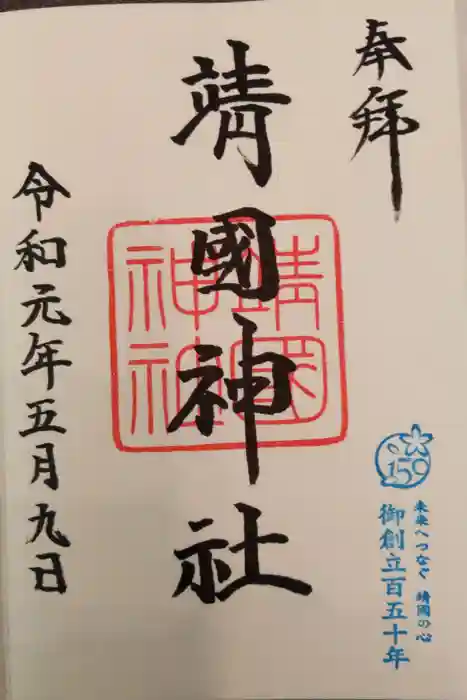 奉拝
靖國神社
靖國
神社
令和元年五月九日
150
未来へつなぐ 靖國の心
御創立百五十年